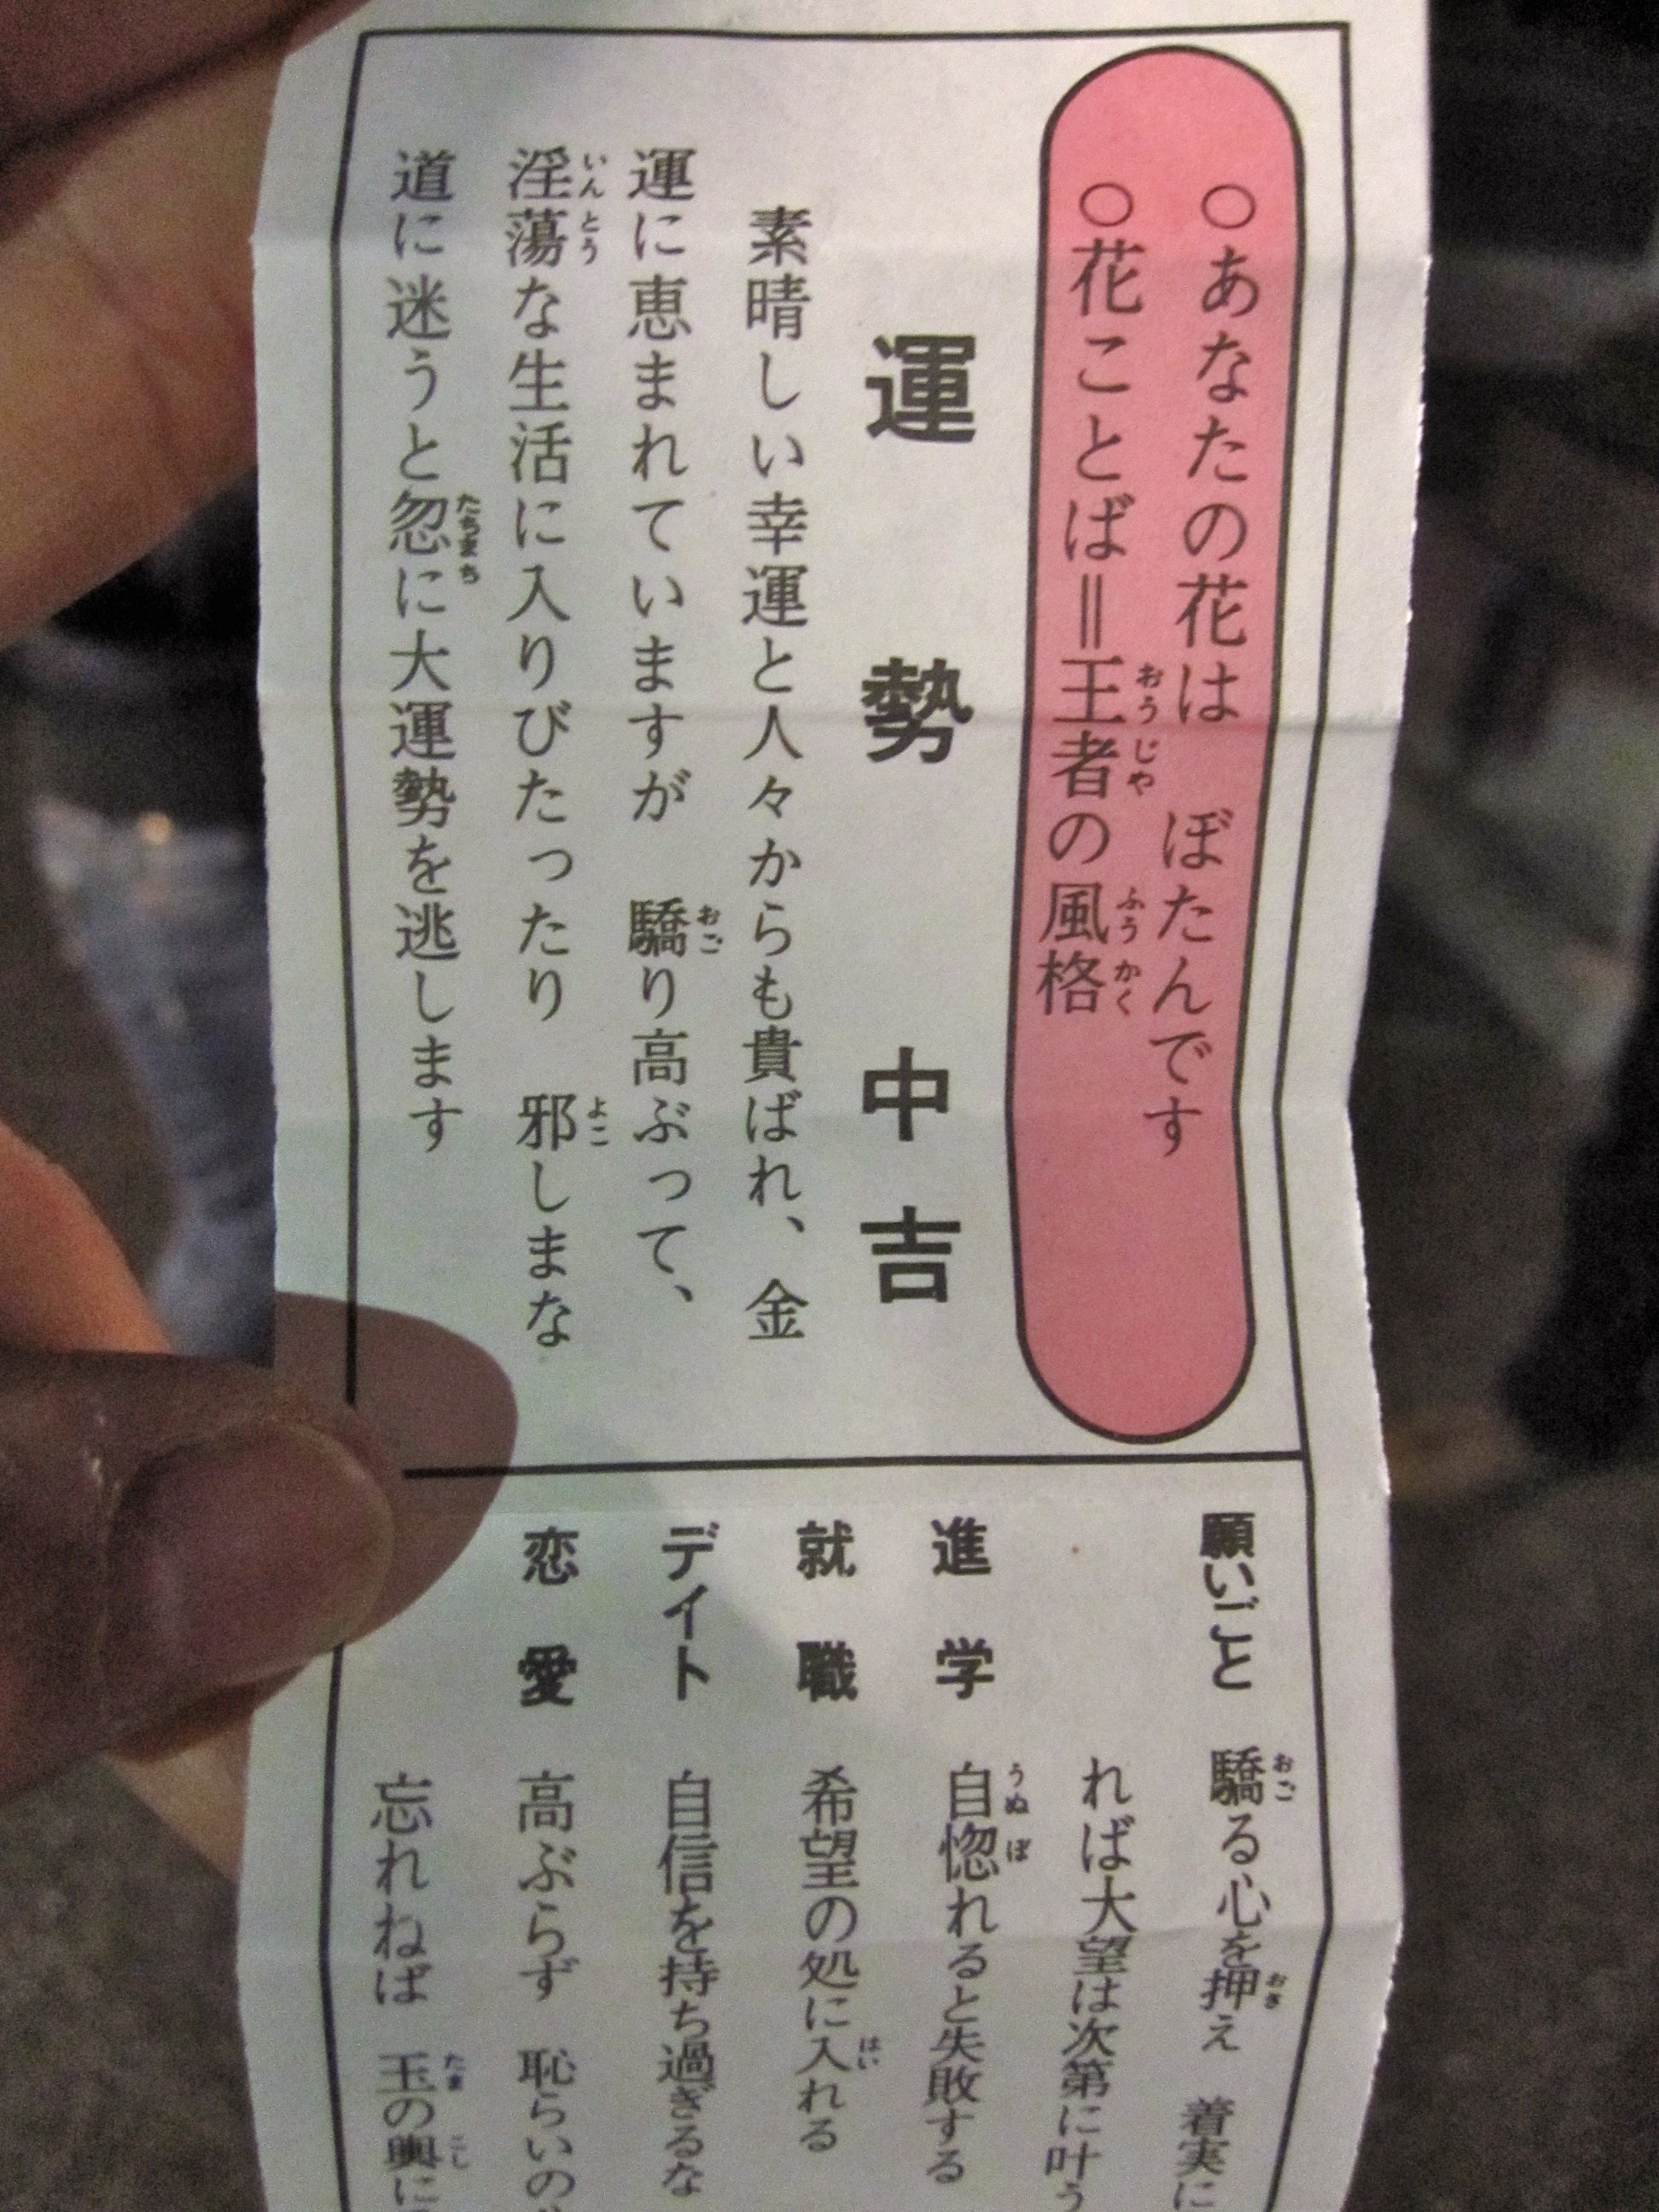 ○あなたの花は　ぼたんです
○花ことば＝王者の風格
運勢　中吉
素晴しい幸運と人々からも貴ばれ、金
運に恵まれていますが　驕り高ぶって、
淫蕩な生活に入りびたったり　邪しまな
道に迷うと忽に大運勢を逃します
願いごと　驕る心を押え　着実に
れば大望は次第に叶う
進学　自惚れると失敗する
就職　希望の処に入れる
デイト　自信を持ち過ぎるな
恋愛　高ぶらず　恥らいの
忘れねば　玉の輿に